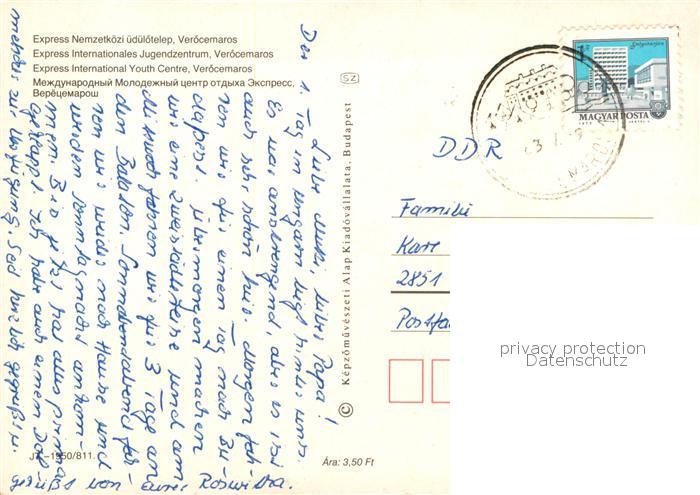 Express Nemzetközi üdülőtelep, Verőcemaros
Express Internationales Jugendzentrum, Verőcemaros
Express International Youth Centre, Verőcemaros
Международный Молодежный центр отдыха Экспресс,
Верёцемарош
Liebe Mutti, lieber Papa!
Der 1. Tag in Ungarn liegt hinter uns.
Es war anstrengend, aber es ist
auch sehr schön hier. Morgen fah-
ren wir für einen Tag nach Bu-
dapest. Übermorgen machen
wir eine Zwerstädtereise und am
Mittwoch fahren wir für 3 Tage an
den Balaton. Sonnabendabend fah-
ren wir wieder nach Hause und
werden Sonntag nacht ankom-
men. Bis jetzt hat alles prima
geklappt. Ich habe auch einen Dol-
metscher zur Verfügung. Seid herzlich gegrüßt u.
geküßt von Eurer Roswitha.
JT-1950/811.
Ára: 3,50 Ft
SZ
© Képzőművészeti Alap Kiadóvállalata, Budapest
Salgótarján
MAGYAR POSTA
DDR
Familie
Karl
2851
Postfa
privacy protection
Datenschutz